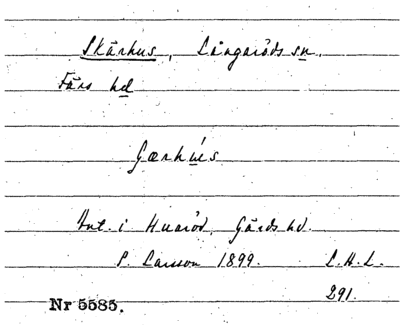 Skärhus, Långaröds sn.
Färs hd
Gærhús
Ant. i Huaröd, Gärds hd.
P. Larsson 1899. L.H.L.
291.
Nr 5585.